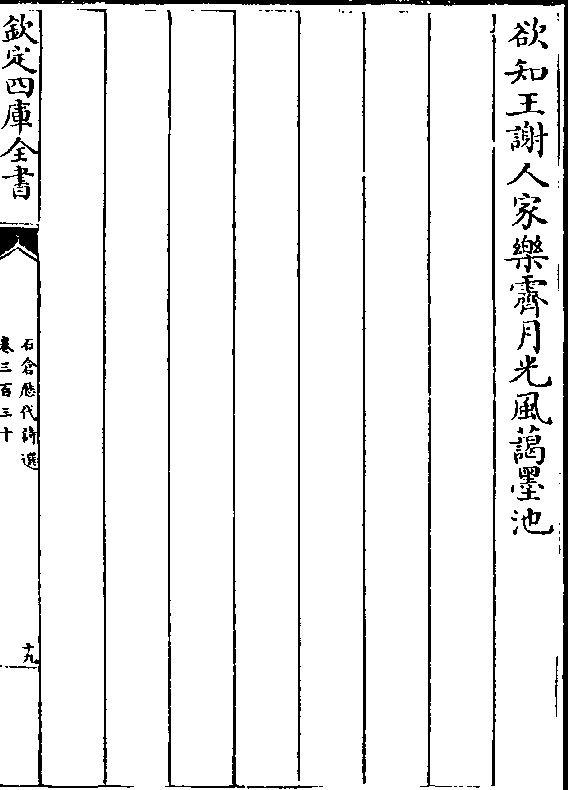 欲知王謝人家樂霽月光風藹墨池
欽定四庫全書
石倉歴代詩選
卷三百三十
十九